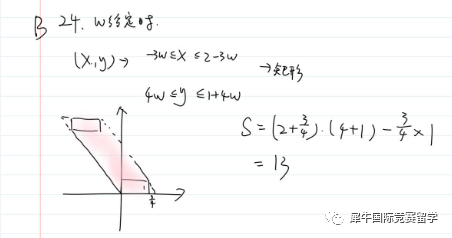 B 24. w给定时.
(x,y) → -3w ≤ x ≤ 2-3w
4w ≤ y ≤ 1+4w
→ 矩形
S = (2+3/4)·(4+1) - 3/4 × 1
= 13
犀牛国际竞赛留学